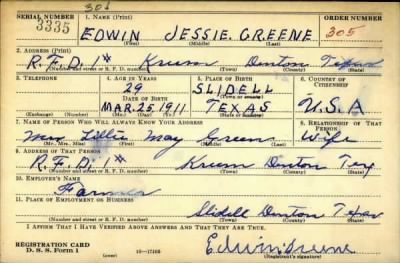 308
SERIAL NUMBER 1. NAME (Print) ORDER NUMBER
3335 EDWIN JESSIE. GREENE 305
(First) (Middle) (Last)
2. ADDRESS (Print)
R.F.D. 1* Krum Denton Texas
(Number and street or R. F. D. number) (Town) (County) (State)
3. TELEPHONE 4. AGE IN YEARS 5. PLACE OF BIRTH 6. COUNTRY OF CITIZENSHIP
29 SLIDELL
DATE OF BIRTH (Town or county)
MAR. 25, 1911 TEXAS U.S.A
(Exchange) (Number) (Mo.) (Day) (Yr.) (State or country)
7. NAME OF PERSON WHO WILL ALWAYS KNOW YOUR ADDRESS 8. RELATIONSHIP OF THAT PERSON
Mrs Lillie May Green Wife
(Mr., Mrs., Miss) (First) (Middle) (Last)
9. ADDRESS OF THAT PERSON
R.F.D. 1* Krum Denton Tex
(Number and street or R. F. D. number) (Town) (County) (State)
10. EMPLOYER'S NAME
Farmer
11. PLACE OF EMPLOYMENT OR BUSINESS
Slidell Denton Texas
(Number and street or R. F. D. number) (Town) (County) (State)
I AFFIRM THAT I HAVE VERIFIED ABOVE ANSWERS AND THAT THEY ARE TRUE.
REGISTRATION CARD Edwin Greene
D. S. S. Form 1 (over) 16-17105 (Registrant's signature)